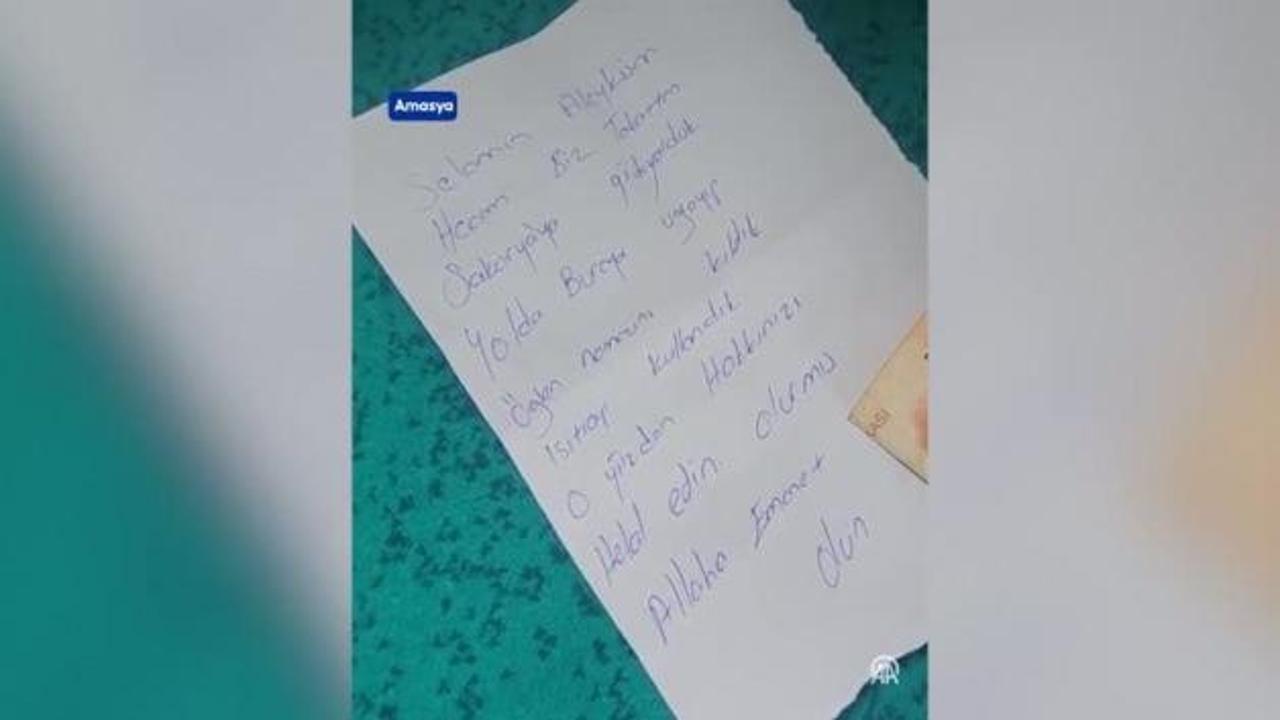 Amasya
Selamün Aleyküm
Hocam Biz
Sakaryaya gidiyorduk
Yolda Buraya uğrayıp
Öğlen namazını kıldık
Isıtıcıyı kullandık
O yüzden Hakkınızı
Helal edin olurmu
Allaha Emanet
olun
AA